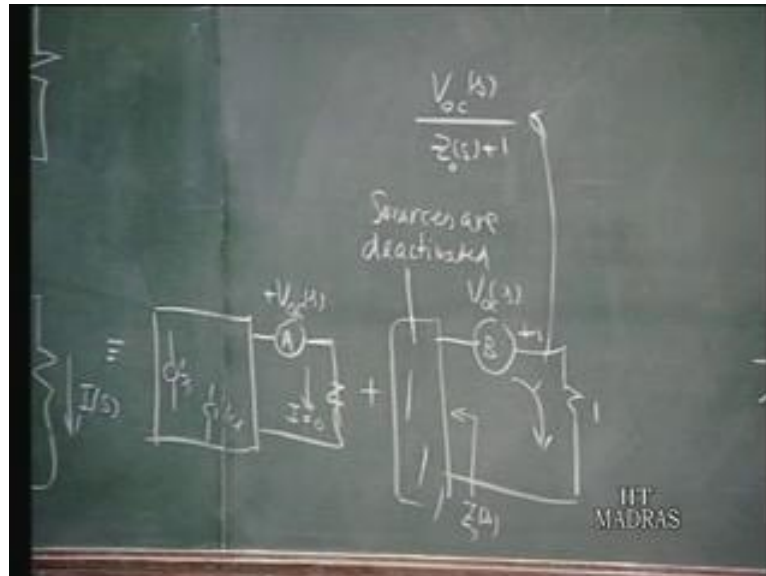 V_oc(s)
Z_o(s)+1
Sources are
deactivated
+V_oc(s)
V_oc(s)
A
B
+
≡
I(s)
I=0
+
1
IIT
MADRAS